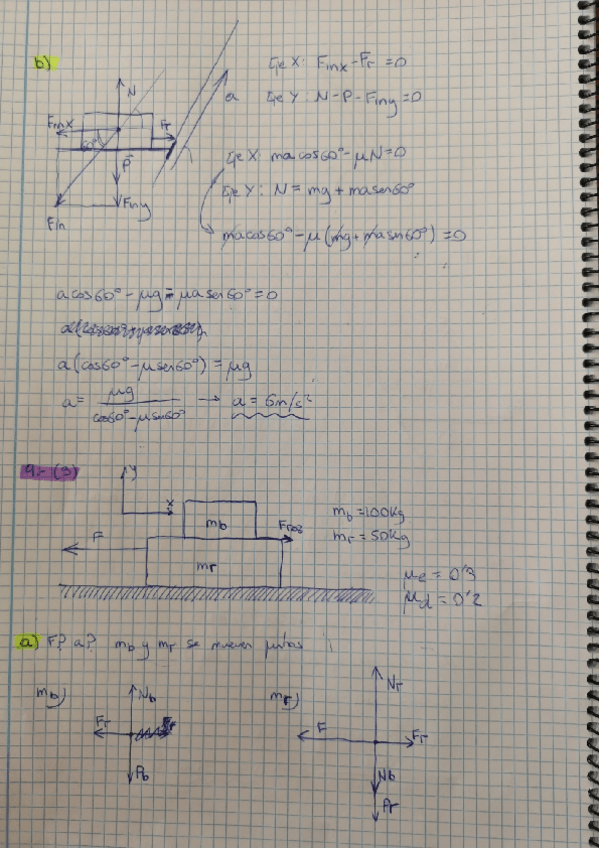 b)
N
a
Finx
Fr
60º
P
Finy
Fin
Eje X: Finx - Fr = 0
Eje Y: N - P - Finy = 0
Eje X: ma cos60° - μN = 0
Eje Y: N = mg + ma sen60°
ma cos60° - μ(mg + ma sen60°) = 0
a cos60° - μg - μa sen60° = 0
a(cos60° - μ sen60°) = μg
a = μg / cos60° - μ sen60° → a = 6m/s²
9.- (3)
Y
X
mb
Froz
F
mr
mb = 100Kg
mr = 50Kg
μe = 0'3
μd = 0'2
a) F? a? mb y mr se mueven juntos
mb)
Nb
Fr
Pb
mr)
Nr
F
Fr
Nb
Pr